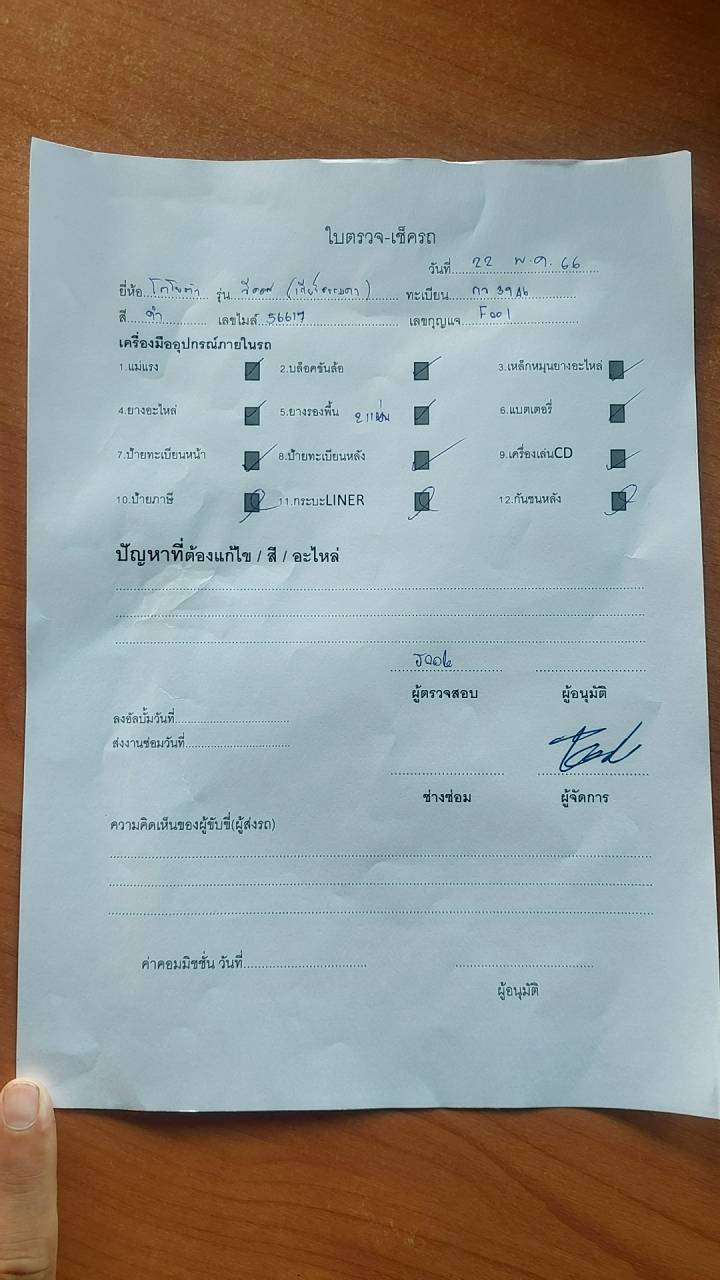 ใบตรวจ-เช็ครถ
วันที่ 22 พ.ค. 66
ยี่ห้อ โตโยต้า รุ่น วีออส (เกียร์ธรรมดา) ทะเบียน
สี ดำ เลขไมล์ 56617 เลขกุญแจ F001
เครื่องมืออุปกรณ์ภายในรถ
1.แม่แรง 2.บล็อคขันล้อ 3.เหล็กหมุนยางอะไหล่
4.ยางอะไหล่ 5.ยางรองพื้น 2 แผ่น 6.แบตเตอรี่
7.ป้ายทะเบียนหน้า 8.ป้ายทะเบียนหลัง 9.เครื่องเล่นCD
10.ป้ายภาษี 11.กระบะLINER 12.กันชนหลัง
ปัญหาที่ต้องแก้ไข / สี / อะไหล่
ผู้ตรวจสอบ ผู้อนุมัติ
ลงอัลบั้มวันที่
ส่งงานซ่อมวันที่
ช่างซ่อม ผู้จัดการ
ความคิดเห็นของผู้ขับขี่(ผู้ส่งรถ)
ค่าคอมมิชชั่น วันที่
ผู้อนุมัติ